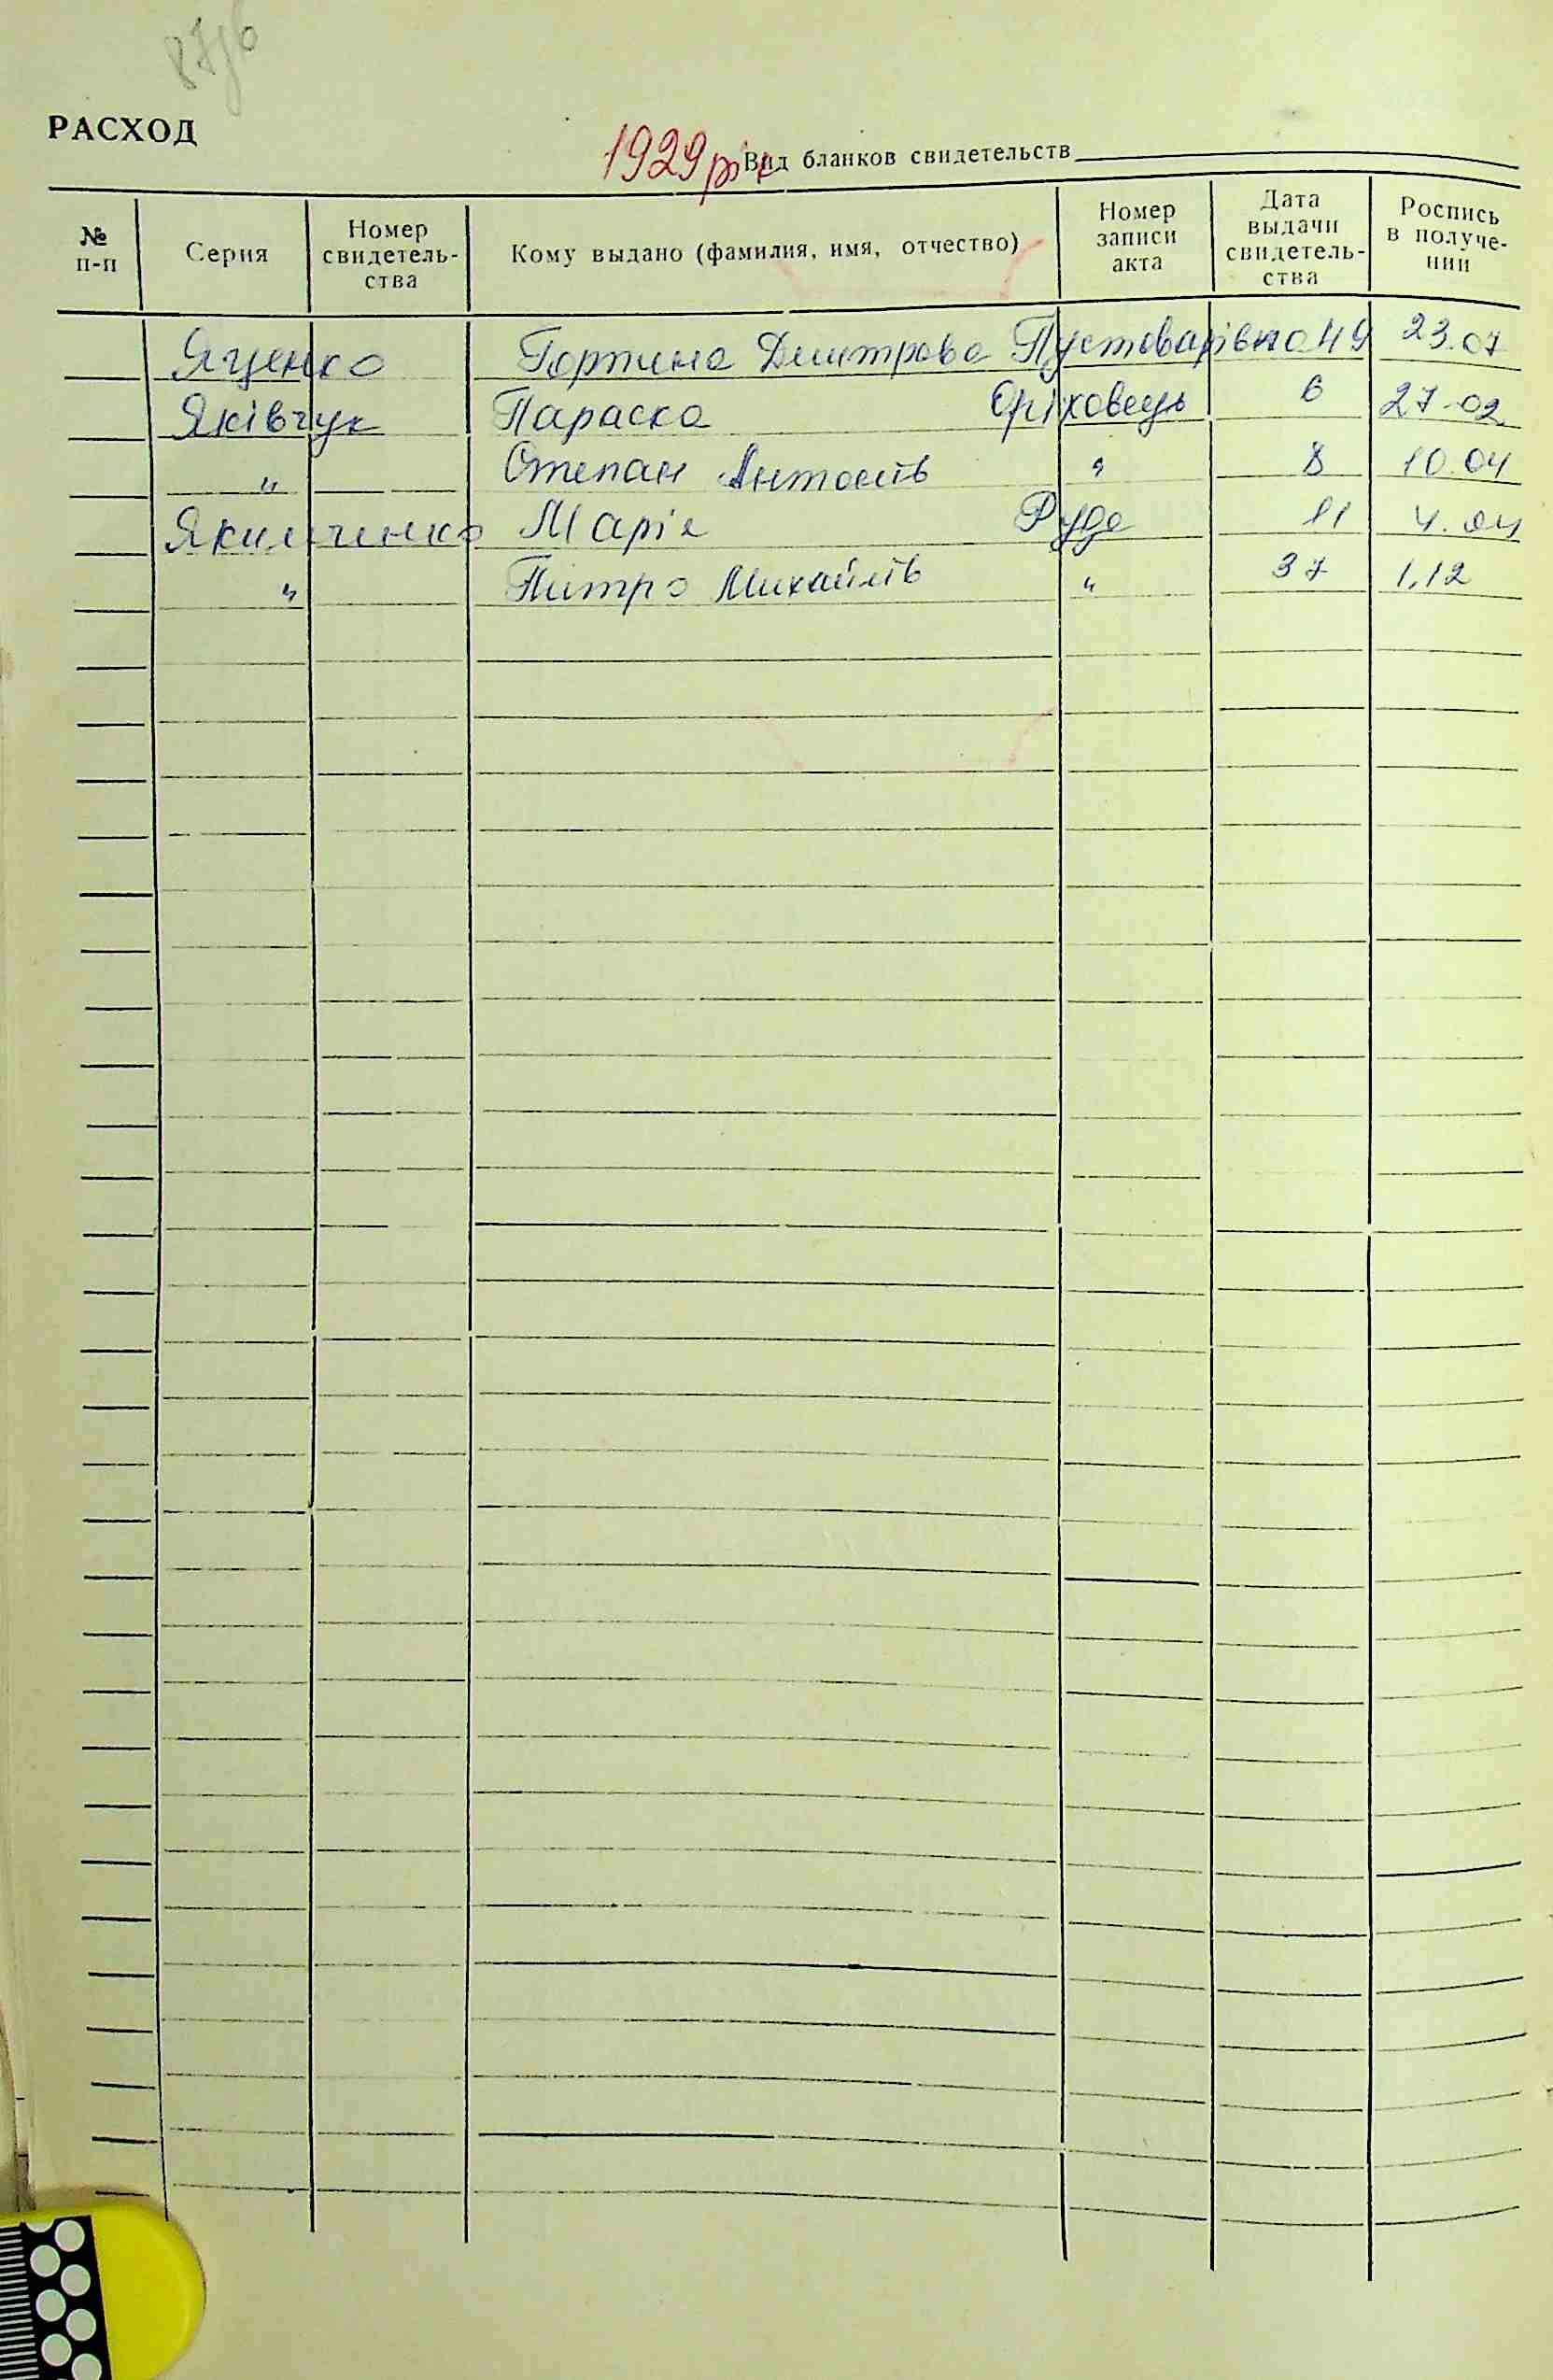 87зв
РАСХОД
1929 рік Вид бланков свидетельств
№ п-п Серия Номер свидетельства Кому выдано (фамилия, имя, отчество) Номер записи акта Дата выдачи свидетельства Роспись в получении
Яценко Горпина Дмитрова Пустоварівка 49 23.07
Яківчук Параска Оріховець 6 27-02
" Степан Антосів " 8 10.04
Якимченко Марія Руда 11 4.04
" Питро Михайлів " 37 1.12